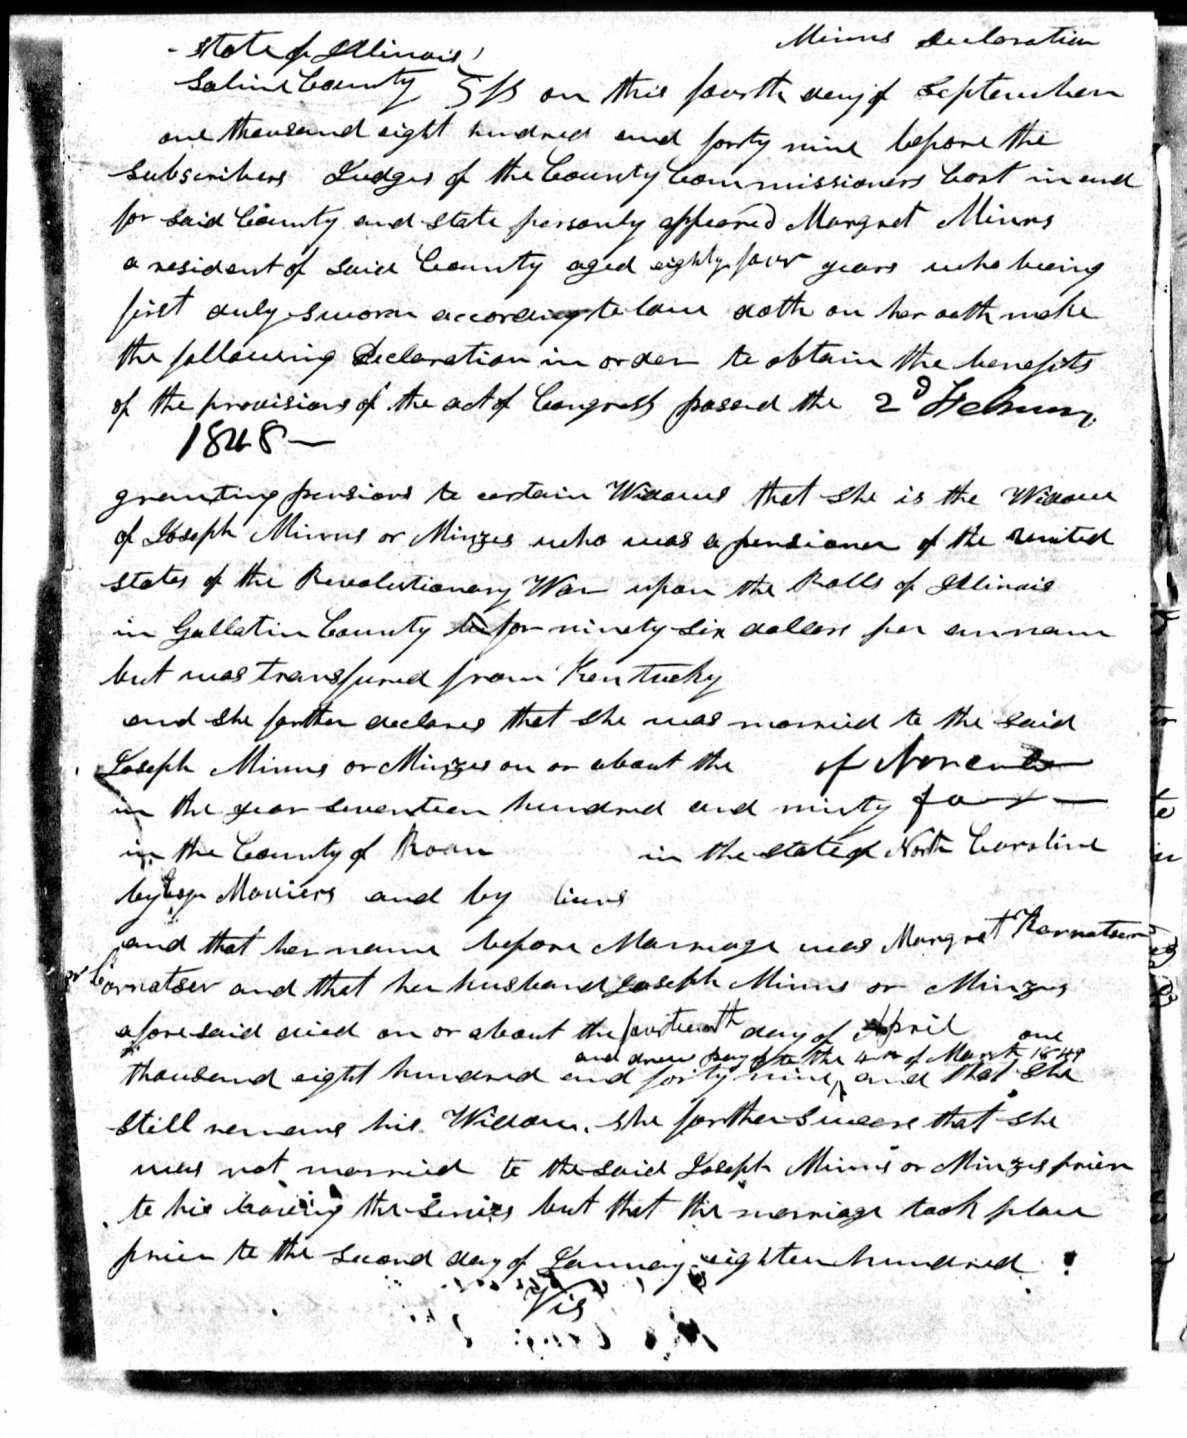 Minns Declaration
State of Illinois
Saline County } SS on this fourth day of September
one thousand eight hundred and forty nine before the
Subscribers Judges of the County Commissioners Cort in and
for said County and state personly appeared Margret Minns
a resident of said County aged eighty four years who being
first duly sworn according to law doth on her oath make
the following Declaration in order to obtain the benefits
of the provisions of the act of Congress passed the 2d February
1848 —
granting pensions to certain Widows that she is the Widow
of Joseph Minns or Minzes who was a pensioner of the united
states of the Revolutionary War upon the Rolls of Illinois
in Gallatin County for ninety six dollars per annam
but was transfured from Kentucky
and she further declares that she was married to the said
Joseph Minns or Minzes on or about the of November
in the year seventeen hundred and ninty four —
in the County of Roan in the state of North Caroline
by Esqr and by
and that her name before Marriage was Margret Karnatser
or Cornatser and that her husband Joseph Minns or Minzes
aforesaid died on or about the fourteenth day of April one
and drew pay up to the 4th of March 1849
thousand eight hundred and forty nine, and that she
still remans his Widow. she further swears that she
was not married to the said Joseph Minns or Minzes prier
to his leaving the servies but that the marriage took place
prier to the second day of January eighteen hundred
Vis